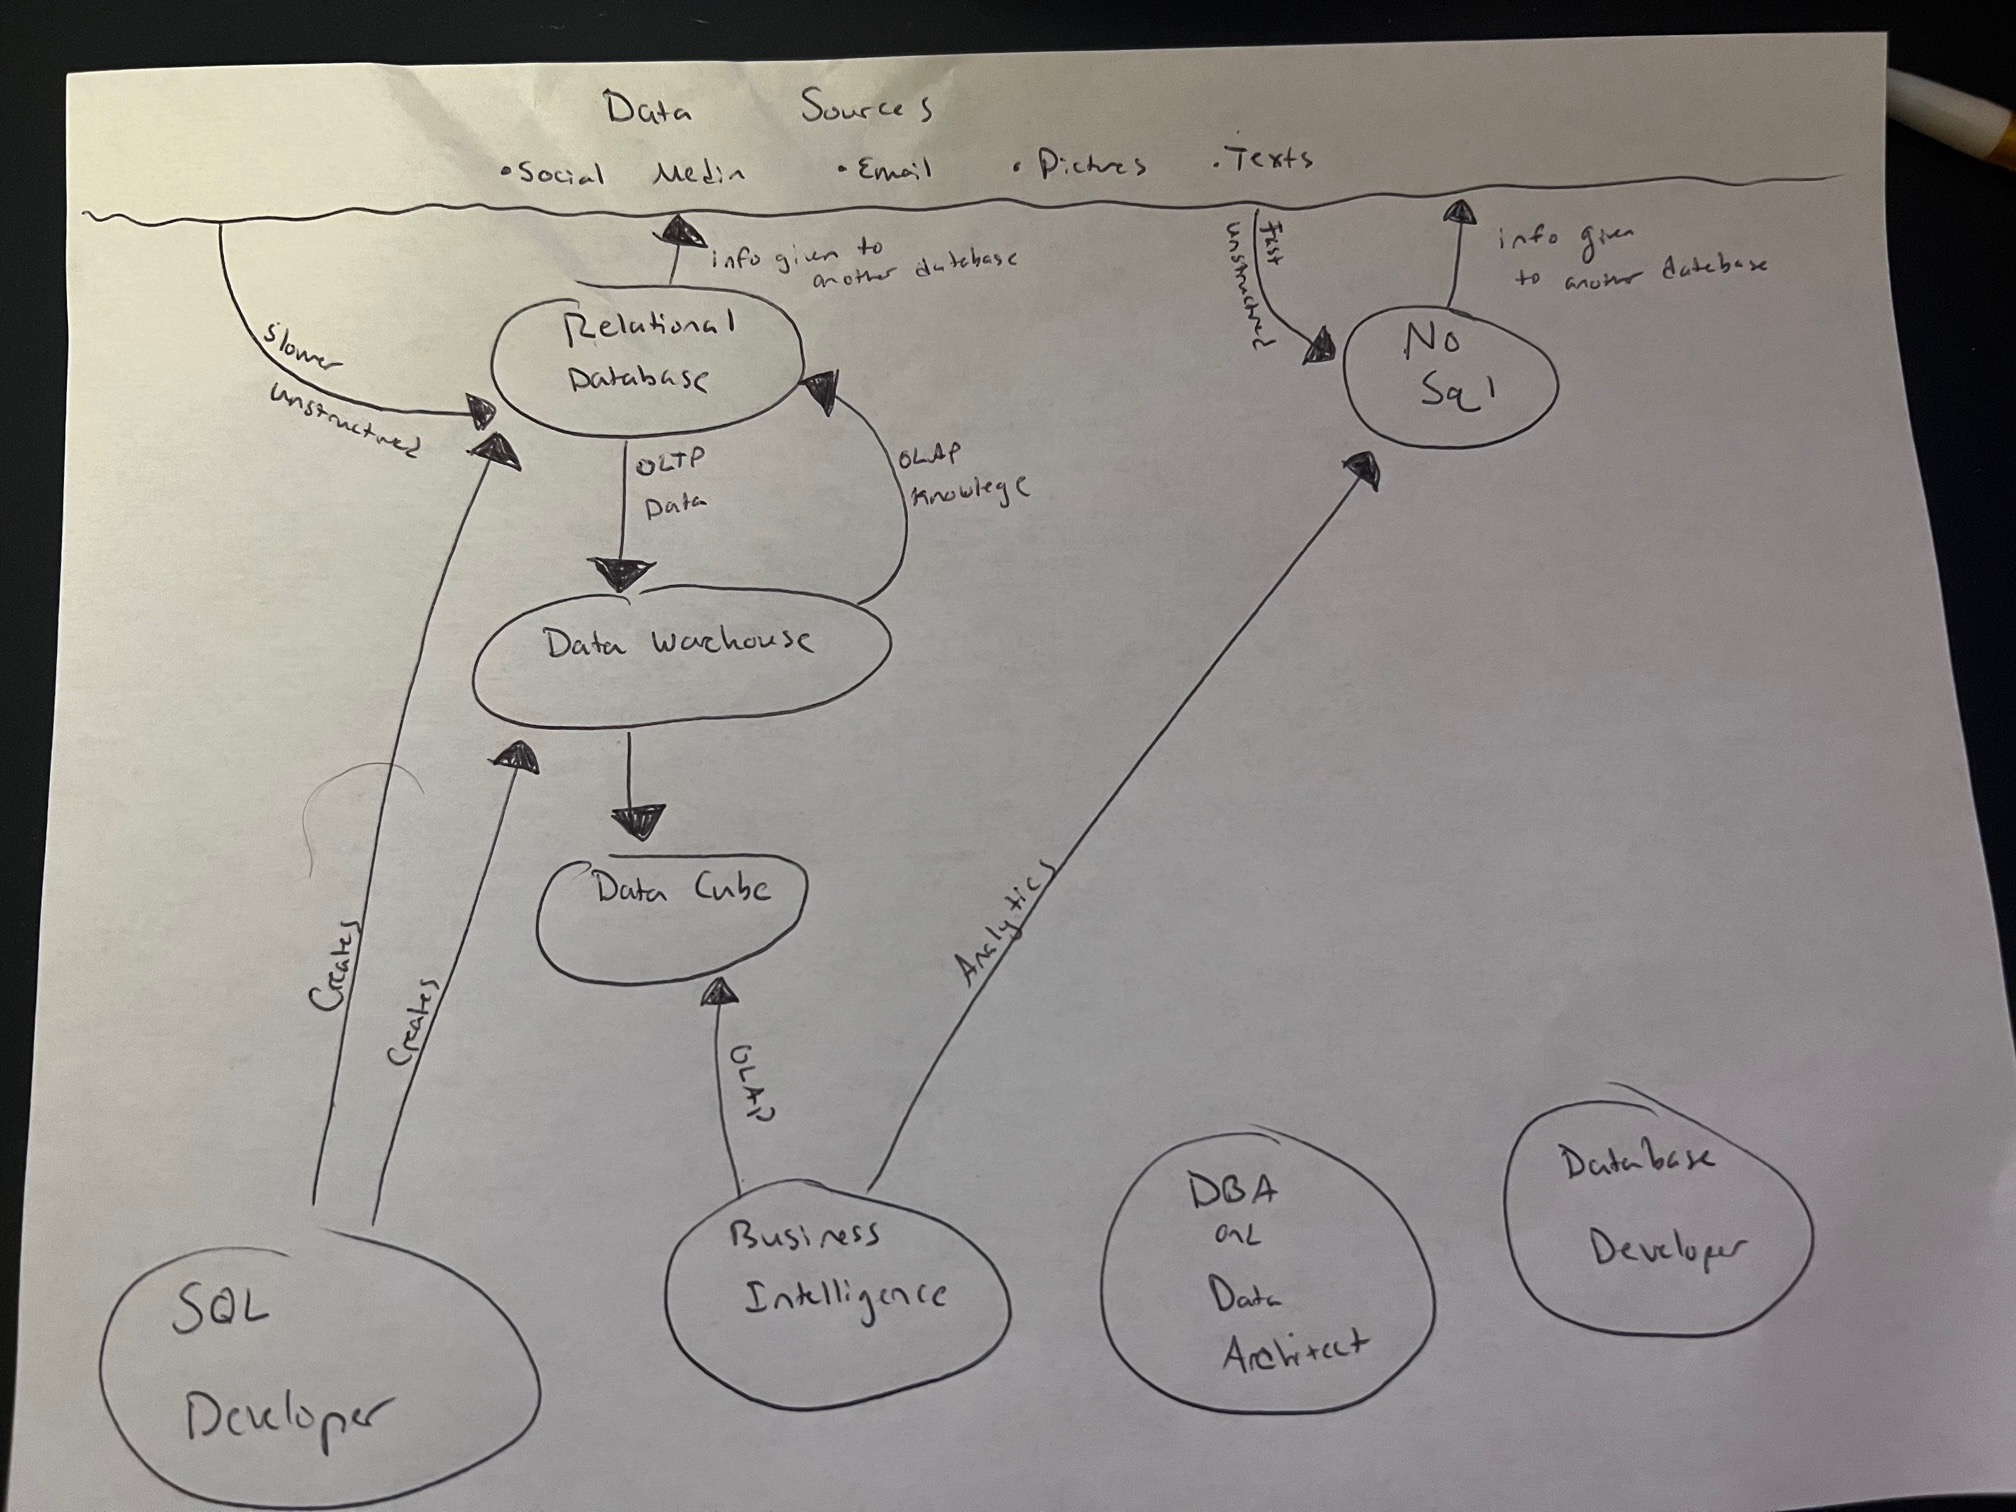 Data Sources
• Social Media • Email • Pictures • Texts
info given to
another database
Fast
unstructured
info given
to another database
Slower
unstructured
Relational
Database
No
Sql
OLTP
Data
OLAP
Knowlege
Data Warehouse
Data Cube
Creates
Creates
OLAP
Analytics
SQL
Developer
Business
Intelligence
DBA
Data
Architect
Database
Developer